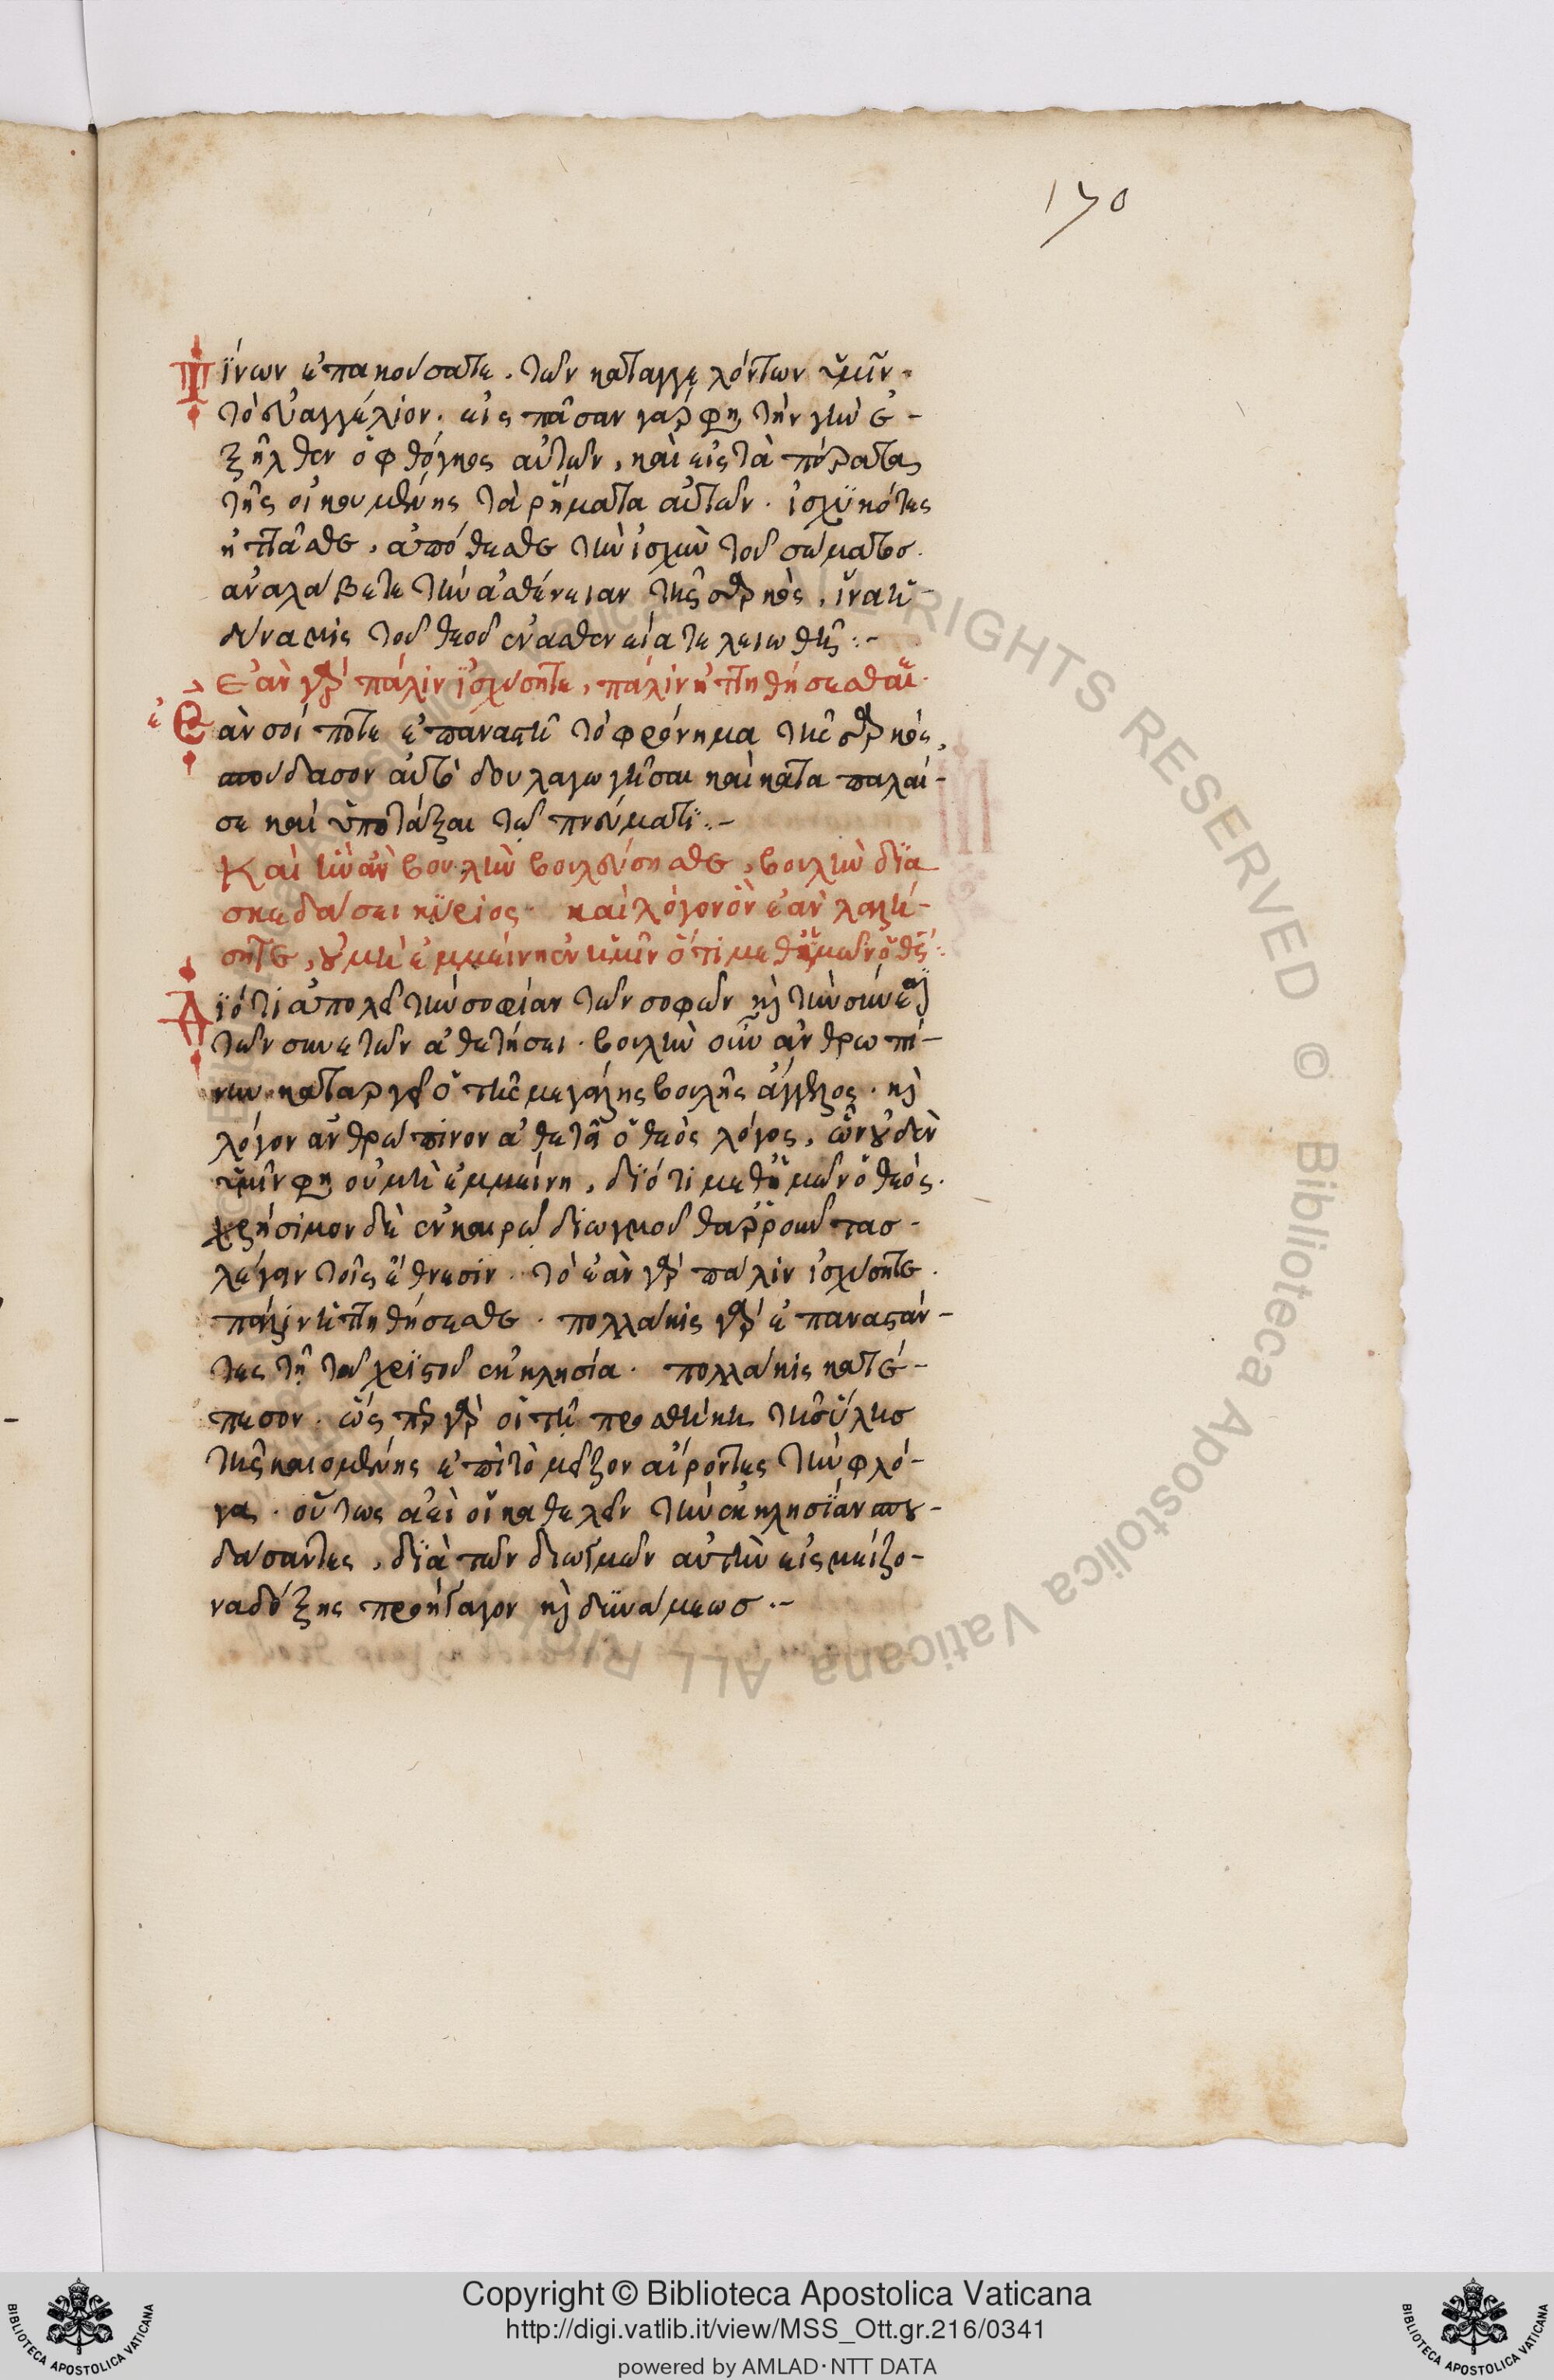 170
Πίνων ἐπακούσατε. τῶν καταγγελόντων ὑμῖν.
τὸ εὐαγγέλιον. εἰς πᾶσαν γὰρ φη τὴν γῆν ἐ-
ξῆλθεν ὁ φθόγγος αὐτῶν, καὶ εἰς τὰ πέρατα
τῆς οἰκουμένης τὰ ῥήματα αὐτῶν. ἰσχυκότες
ἡττᾶσθε, ἀπόθεσθε τὴν ἰσχὺν τοῦ σώματος.
ἀναλάβετε τὴν ἀσθένειαν τῆς σαρκὸς, ἵνα ἡ
δύναμις τοῦ θεοῦ ἐν ἀσθενεία τελειωθῆ:-
Ἐὰν γὰρ πάλιν ἰσχύσητε, πάλιν ἡττηθήσεσθαι.
Ἐὰν σοί ποτε ἐπαναστῆ τὸ φρόνημα τῆς σαρκός,
σπούδασον αὐτὸ δουλαγωγῆσαι καὶ καταπαλαί-
σε καὶ ὑποτάξαι τῶ πνεύματι:-
Καὶ ἣν ἂν βουλὴν βουλεύσησθε, βουλὴν δια
σκεδάσει κύριος. καὶ λόγον ὃν ἐὰν λαλή-
σητε, οὐ μὴ ἐμμείνη ἐν ὑμῖν ὅτι μεθ' ἡμῶν ὁ θς:
Διότι ἀπολεῖ τὴν σοφίαν τῶν σοφῶν κ τὴν σύνεσιν
τῶν συνετῶν ἀθετήσει. βουλὴν οὖν ἀνθρωπί-
νην καταργεῖ ὁ τῆς μεγάλης βουλῆς ἄγγελος. κ
λόγον ἀνθρώπινον ἀθετεῖ ὁ θεὸς λόγος, ὧν οὐδὲν
ὑμῖν φη οὐ μὴ ἐμμείνη, διότι μεθ' ἡμῶν ὁ θεός.
χρήσιμον δὲ ἐν καιρῶ διωγμοῦ θαρροῦντας
λέγειν τοῖς ἔθνεσιν. τὸ ἐὰν γὰρ πάλιν ἰσχύσητε.
πάλιν ἡττηθήσεσθε. πολλάκις γὰρ ἐπαναστάν-
τες τῆ τοῦ χριστοῦ ἐκκλησία. πολλάκις κατέ-
πεσον. ὥς περ γὰρ οἱ τῆ προσθήκη τῆς ὕλης
τῆς καιομένης ἐπὶ τὸ μεῖζον αἴροντες τὴν φλό-
γα. οὕτως ἀεὶ οἱ καθελεῖν τὴν ἐκκλησίαν σπου-
δάσαντες, διὰ τῶν διωγμῶν αὐτὴν εἰς μείζο-
να δόξης προήγαγον κ δυνάμεως.-
Copyright © Biblioteca Apostolica Vaticana
http://digi.vatlib.it/view/MSS_Ott.gr.216/0341
powered by AMLAD·NTT DATA